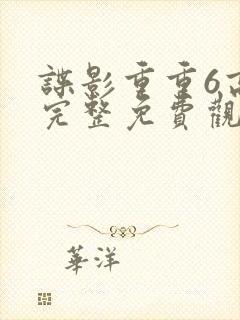 諜影重重6高
完整免費觀
華洋